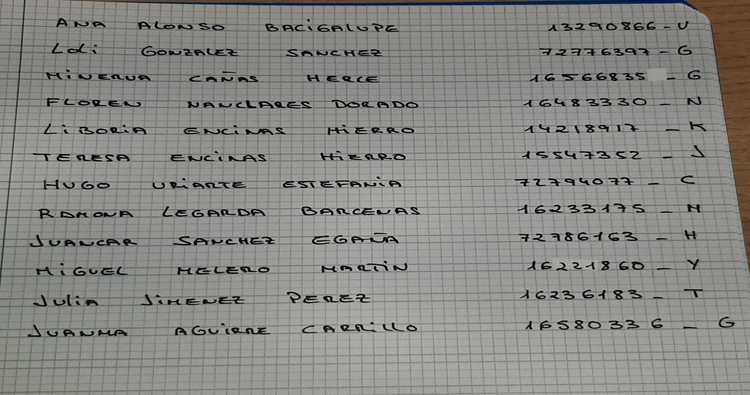 ANA ALONSO BACIGALUPE 13290866-U
LOLI GONZALEZ SANCHEZ 72776397-G
MINERVA CAÑAS HERCE 16566835 -G
FLOREN NANCLARES DORADO 16483330-N
LIBORIA ENCINAS HIERRO 14218917-K
TERESA ENCINAS HIERRO 15547352-J
HUGO URIARTE ESTEFANIA 72794077-C
RAMONA LEGARDA BARCENAS 16233175-M
JUANCAR SANCHEZ EGAÑA 72786163-H
MIGUEL MELERO MARTIN 16221860-Y
JULIA JIMENEZ PEREZ 16236183-T
JUANMA AGUIRRE CARRILLO 16580336-G